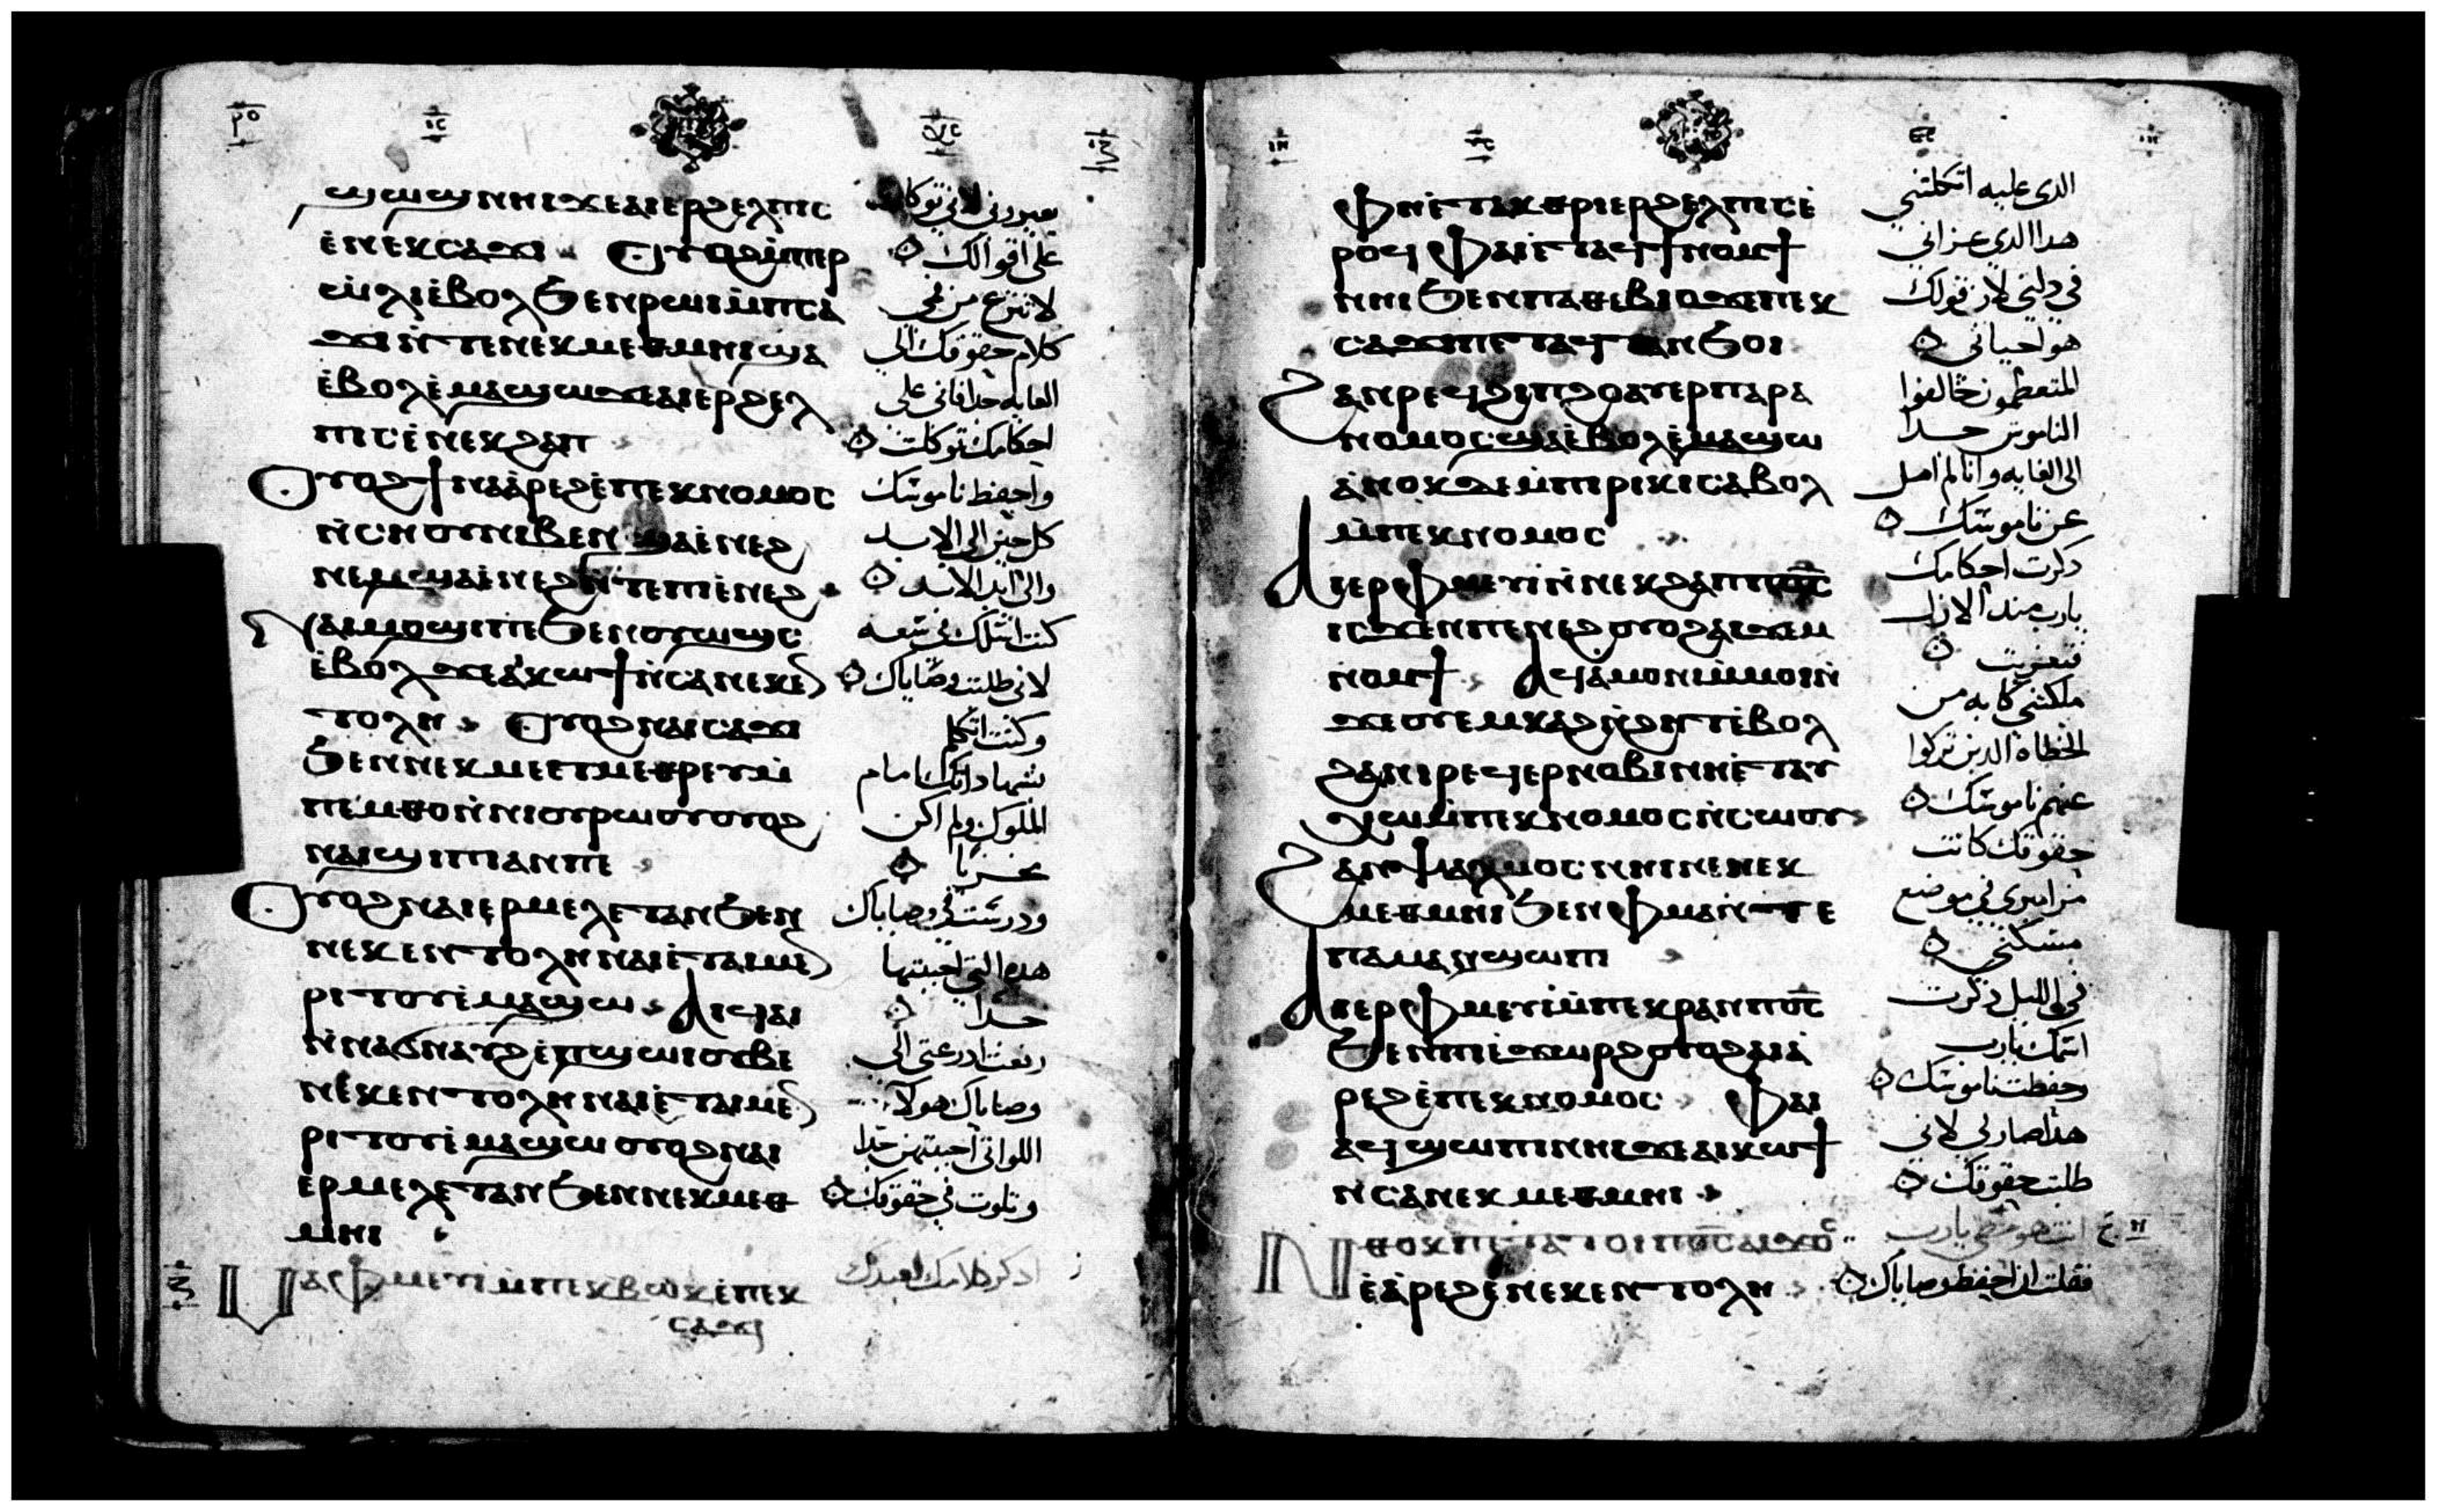 ϣϣϣ ⲛⲛⲓ ϫⲉ ⲁⲓⲉⲣϩⲉⲗⲡⲓⲥ
ⲉ̀ⲛⲉⲕⲥⲁϫⲓ Ⲟⲩⲟϩ ⲙ̀ⲡⲉⲣ
ⲱ̀ⲗⲓ ⲉ̀ⲃⲟⲗ ϧⲉⲛ ⲣⲱⲓ ⲙ̀ⲡⲥⲁ
ϫⲓ ⲛ̀ⲧⲉ ⲛⲉⲕⲙⲉⲑⲙⲏⲓ ϣⲁ
ⲉ̀ⲃⲟⲗ ⲉ̀ⲙⲁϣⲱ ϫⲉ ⲁⲓⲉⲣϩⲉⲗ
ⲡⲓⲥ ⲉ̀ⲛⲉⲕϩⲁⲡ
Ⲟⲩⲟϩ ϯⲛⲁⲁ̀ⲣⲉϩ ⲉ̀ⲡⲉⲕⲛⲟⲙⲟⲥ
ⲛ̀ⲥⲏⲟⲩ ⲛⲓⲃⲉⲛ ϣⲁ ⲉ̀ⲛⲉϩ
ⲛⲉⲙ ϣⲁ ⲉ̀ⲛⲉϩ ⲛ̀ⲧⲉ ⲡⲓⲉ̀ⲛⲉϩ
Ⲛⲁⲓⲙⲟϣⲓ ⲡⲉ ϧⲉⲛ ⲟⲩⲱϣⲥ
ⲉ̀ⲃⲟⲗ ϫⲉ ⲁⲓⲕⲱϯ ⲛ̀ⲥⲁ ⲛⲉⲕⲉⲛ
ⲧⲟⲗⲏ Ⲟⲩⲟϩ ⲛⲁⲓⲥⲁϫⲓ
ϧⲉⲛ ⲛⲉⲕⲙⲉⲧⲙⲉⲑⲣⲉⲩ ⲙ̀
ⲡⲉⲙⲑⲟ ⲛ̀ⲛⲓⲟⲩⲣⲱⲟⲩ ⲟⲩⲟϩ
ⲛⲁⲓϣⲓⲡⲓ ⲁⲛ ⲡⲉ
Ⲟⲩⲟϩ ⲛⲁⲓⲉⲣⲙⲉⲗⲉⲧⲁⲛ ϧⲉⲛ
ⲛⲉⲕⲉⲛⲧⲟⲗⲏ ⲛⲁⲓ ⲉ̀ⲧⲁⲓⲙⲉⲛ
ⲣⲓⲧⲟⲩ ⲉ̀ⲙⲁϣⲱ Ⲁⲓϥⲁⲓ
ⲛ̀ⲛⲁϭⲛⲁⲩϩ ⲉ̀ⲡϣⲱⲓ ⲟⲩⲃⲉ
ⲛⲉⲕⲉⲛⲧⲟⲗⲏ ⲛⲁⲓ ⲉ̀ⲧⲁⲓⲙⲉⲛ
ⲣⲓⲧⲟⲩ ⲉ̀ⲙⲁϣⲱ ⲟⲩⲟϩ ⲛⲁⲓ
ⲉⲣⲙⲉⲗⲉⲧⲁⲛ ϧⲉⲛ ⲛⲉⲕⲙⲉⲑ
ⲙⲏⲓ
Ⲁⲣⲓⲫⲙⲉⲩⲓ ⲙ̀ⲡⲉⲕⲃⲱⲕ ⲉ̀ⲡⲉⲕ
ⲥⲁϫⲓ
على اقوالك
لا تنزع من فمى
كلام حقوقك الى
الغايه جدا فانى على
احكامك توكلت
واحفظ ناموسك
كل حين الى الابد
والى ابد الابد
كنت اسلك فى سعه
لانى طلبت وصاياك
وكنت اتكلم
بشهاداتك امام
الملوك ولم اكن
اخزيا
ودرست فى وصاياك
هذه التى احببتها
جدا
رفعت ادرعتى الى
وصاياك هولاء
اللواتى احببتهن جدا
وتلوت فى حقوقك
اذكر كلامك لعبدك
ⲫⲏ ⲉ̀ⲧⲁⲕⲑⲣⲓⲉⲣϩⲉⲗⲡⲓⲥ ⲉ̀
ⲣⲟϥ ⲫⲁⲓ ⲉ̀ⲧⲁϥϯⲛⲟⲙϯ
ⲛⲏⲓ ϧⲉⲛ ⲡⲁⲑⲉⲃⲓⲟ ϫⲉ ⲡⲉⲕ
ⲥⲁϫⲓ ⲡⲉ ⲉⲧⲁϥⲧⲁⲛϧⲟⲓ
Ϩⲁⲛⲣⲉϥϩⲓⲡϩⲟ ⲁⲩⲉⲣⲡⲁⲣⲁ
ⲛⲟⲙⲟⲥ ϣⲁ ⲉ̀ⲃⲟⲗ ⲉ̀ⲙⲁϣⲱ
ⲁ̀ⲛⲟⲕ ⲇⲉ ⲙ̀ⲡⲓⲣⲓⲕⲓ ⲥⲁⲃⲟⲗ
ⲙ̀ⲡⲉⲕⲛⲟⲙⲟⲥ
Ⲁⲓⲉⲣⲫⲙⲉⲩⲓ ⲛ̀ⲛⲉⲕϩⲁⲡ ⲡ︦ⲟ︦ⲥ︦
ⲓⲥϫⲉⲛ ⲡⲉⲛⲉϩ ⲟⲩⲟϩ ⲁⲓϫⲉⲙ
ⲛⲟⲙϯ Ⲁϥⲁ̀ⲙⲟⲛⲓ ⲙ̀ⲙⲟⲓ ⲛ̀
ϫⲉ ⲟⲩⲉⲙⲕⲁϩ ⲛ̀ϩⲏⲧ ⲉ̀ⲃⲟⲗ
ϩⲁ ⲛⲓⲣⲉϥⲉⲣⲛⲟⲃⲓ ⲛⲏ ⲉ̀ⲧⲁⲩ
ⲭⲱ ⲙ̀ⲡⲉⲕⲛⲟⲙⲟⲥ ⲛ̀ⲥⲱⲟⲩ
Ϩⲁⲛⲯⲁⲗⲙⲟⲥ ⲛⲏⲓ ⲛⲉ ⲛⲉⲕ
ⲙⲉⲑⲙⲏⲓ ϧⲉⲛ ⲫⲙⲁ ⲛ̀ⲧⲉ
ⲡⲁⲙⲁⲛ̀ϣⲱⲡⲓ
Ⲁⲓⲉⲣⲫⲙⲉⲩⲓ ⲙ̀ⲡⲉⲕⲣⲁⲛ ⲡ︦ⲟ︦ⲥ︦
ϧⲉⲛ ⲡⲓⲉ̀ϫⲱⲣϩ ⲟⲩⲟϩ ⲁⲓⲁ̀
ⲣⲉϩ ⲉ̀ⲡⲉⲕⲛⲟⲙⲟⲥ Ⲫⲁⲓ
ⲁϥϣⲱⲡⲓ ⲛⲏⲓ ϫⲉ ⲁⲓⲕⲱϯ
ⲛ̀ⲥⲁ ⲛⲉⲕⲙⲉⲑⲙⲏⲓ
Ⲛⲑⲟⲕ ⲡⲉ ⲧⲁⲧⲟⲓ ⲡ︦ⲟ︦ⲥ︦ ⲁⲓϫⲟⲥ
ⲉ̀ⲁ̀ⲣⲉϩ ⲉ̀ⲛⲉⲕⲉⲛⲧⲟⲗⲏ
الذى عليه اتكلتنى
هدا الدى عزانى
فى دلتى لان قولك
هو احيانى
المتعظمون خالفوا
الناموس جدا
الى الغايه وانا لم امل
عن ناموسك
دكرت احكامك
يارب مند الازل
فتعزيت
ملكتنى كابه من
الخطاه الدين تركوا
عنهم ناموسك
حقوقك كانت
مزاميرى فى موضع
مسكنى
فى الليل دكرت
اسمك يارب
وحفظت ناموسك
هدا صار لى لانى
طلبت حقوقك
انت هو حظى يارب
فقلت ان احفظ وصاياك